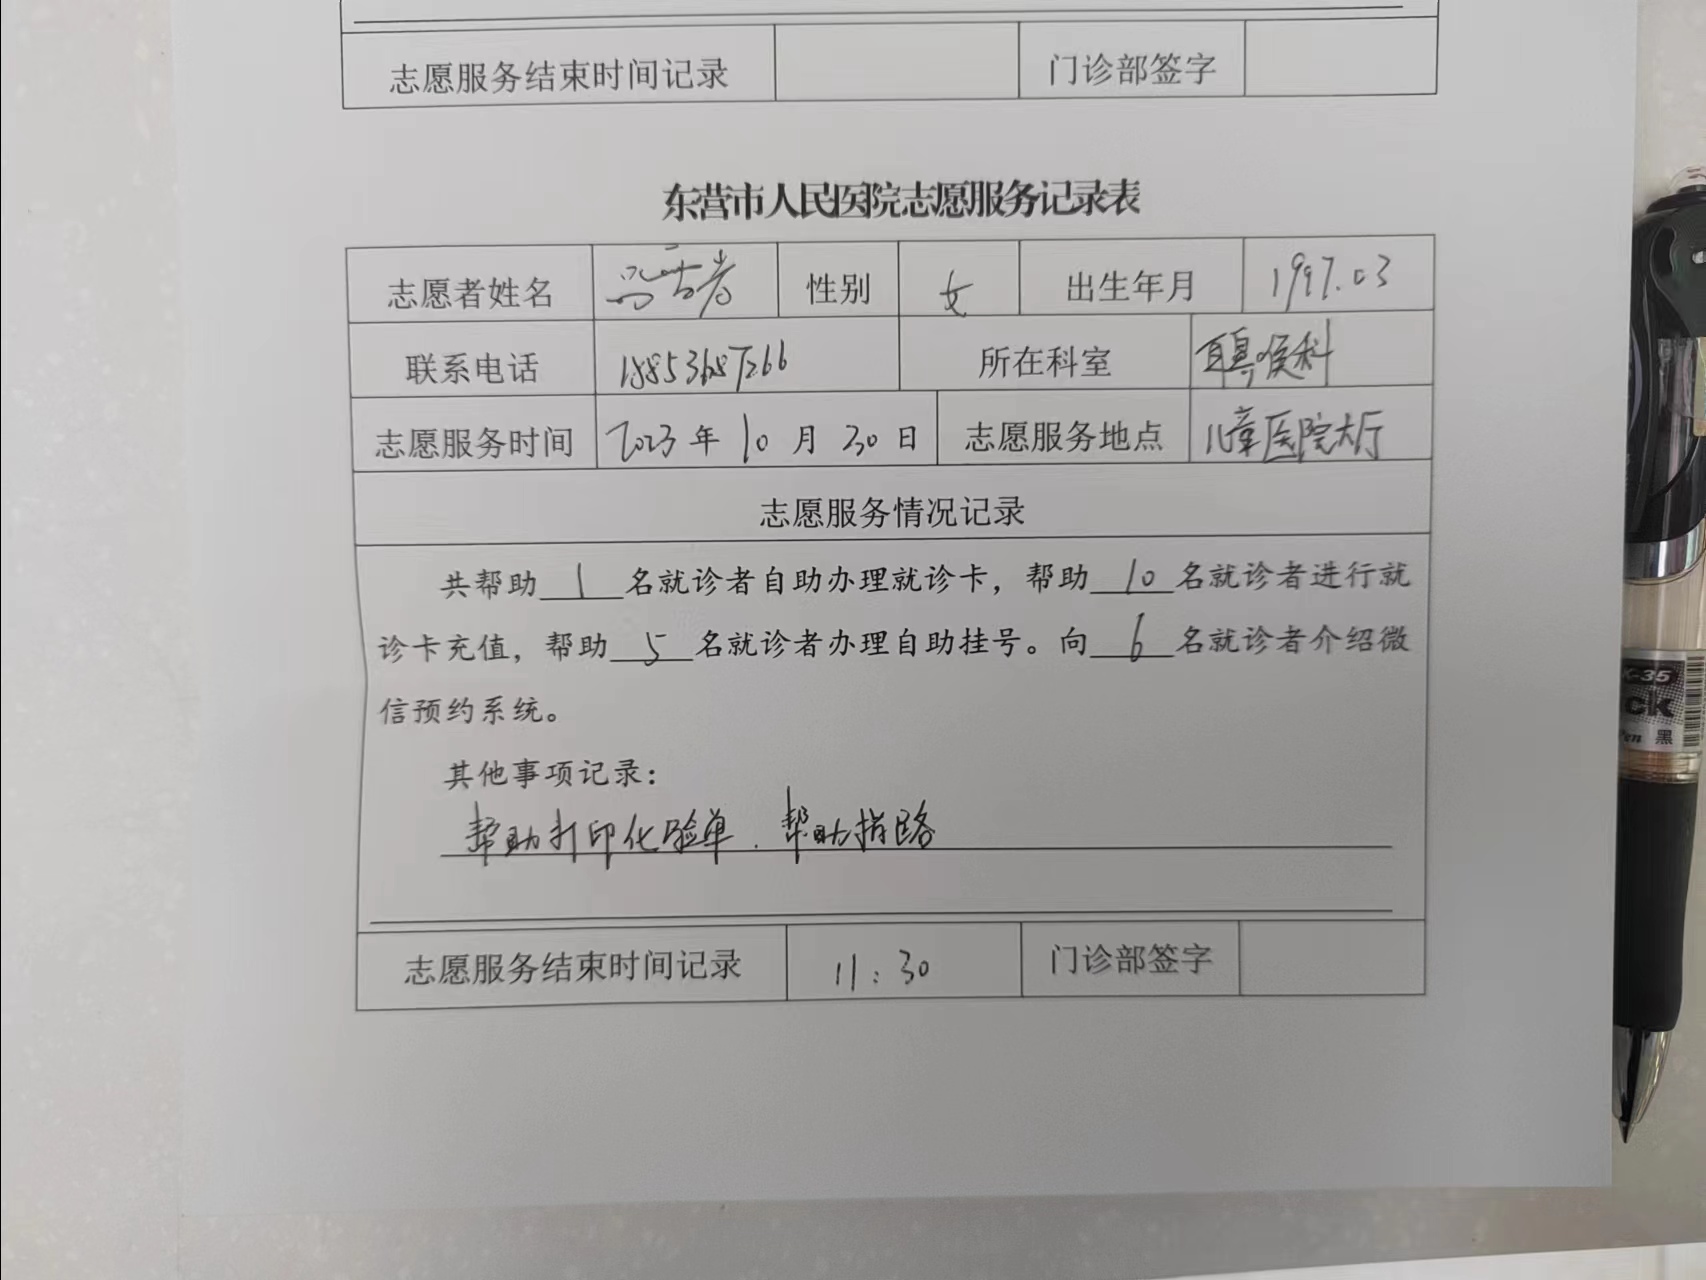 志愿服务结束时间记录 门诊部签字
东营市人民医院志愿服务记录表
志愿者姓名 性别 女 出生年月 1997.03
联系电话 所在科室 耳鼻喉科
志愿服务时间 2023年10月30日 志愿服务地点 儿童医院大厅
志愿服务情况记录
共帮助 1 名就诊者自助办理就诊卡，帮助 10 名就诊者进行就
诊卡充值，帮助 5 名就诊者办理自助挂号。向 6 名就诊者介绍微
信预约系统。
其他事项记录：
帮助打印化验单、帮助指路
志愿服务结束时间记录 11:30 门诊部签字
K-35
ck
Pen 黑